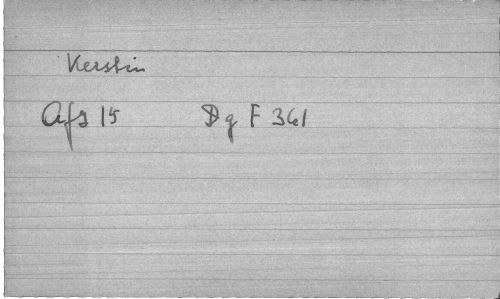 Kerstin
Afs 15 Dg F 361